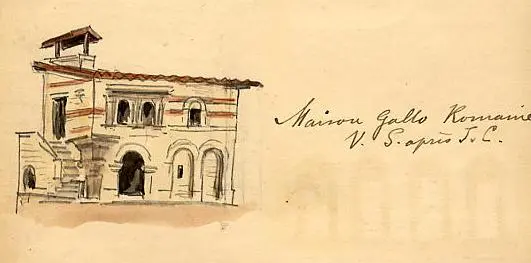 Maison Gallo Romaine
V. S. après J. C.